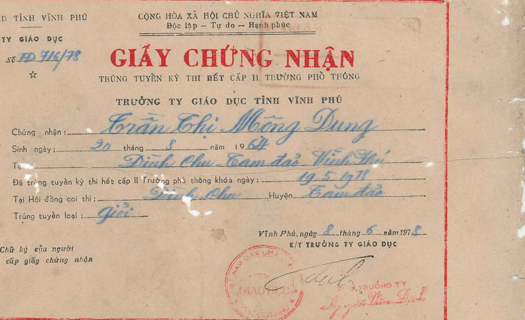 D TỈNH VĨNH PHÚ
CỘNG HÒA XÃ HỘI CHỦ NGHĨA VIỆT NAM
TY GIÁO DỤC
Độc lập - Tự do - Hạnh phúc
Số TĐ 716/78
GIẤY CHỨNG NHẬN
TRÚNG TUYỂN KỲ THI HẾT CẤP II TRƯỜNG PHỔ THÔNG
TRƯỞNG TY GIÁO DỤC TỈNH VĨNH PHÚ
Chứng nhận: Trần Thị Mộng Dung
Sinh ngày: 20 tháng: 8 năm 1964
Tại Đình Chu Tam đảo Vĩnh Phú
Đã trúng tuyển kỳ thi hết cấp II Trường phổ thông khóa ngày: 19.5.1978
Tại Hội đồng coi thi: Đình Chu Huyện Tam đảo
Trúng tuyển loại: Giỏi
Vĩnh Phú, ngày 8 tháng 6 năm 1978
K/T TRƯỞNG TY GIÁO DỤC
Chữ ký của người
cấp giấy chứng nhận
TRƯỞNG TY
Nguyễn Văn